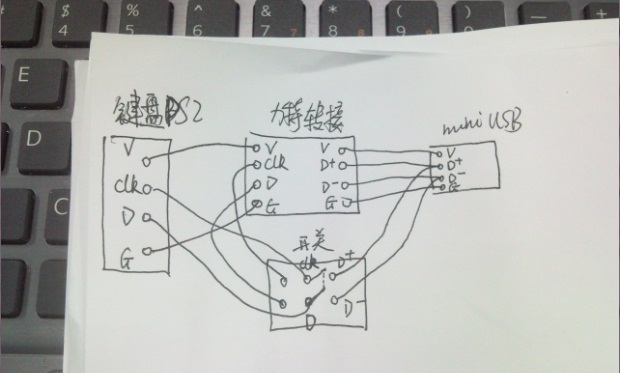 $ % ^ & * ( )
4 5 6 7 8 9
E
D
C
键盘PS2
力特转接
mini USB
V
clk
D
G
V
clk
D
G
V
D+
D-
G
V
D+
D-
G
开关
clk
D+
D
D-